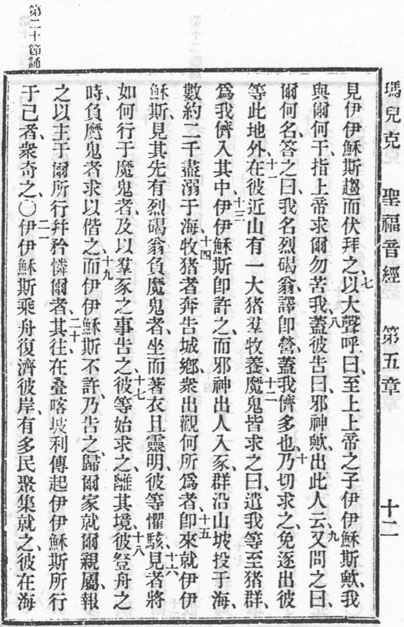 瑪兒克 聖福音經 第五章 十二
見伊伊穌斯趨而伏拜之、七以大聲呼曰、至上上帝之子伊伊穌斯歟、我
與爾何干、指上帝求爾勿苦我、八蓋彼告曰、邪神歟出此人云、九又問之曰、
爾何名、答之曰、我名烈碣翁、譯卽營、蓋我儕多也、十乃切求之、免逐出彼
等此地外、十一在彼近山有一大猪羣牧養、十二魔鬼皆求之曰、遣我等至猪群、
爲我儕入其中、十三伊伊穌斯卽許之、而邪神出人入豕、群沿山坡投于海、
數約二千、盡溺于海、十四牧猪者奔告城鄉、衆出觀何所爲者、十五卽來就伊伊
穌斯、見其先有烈碣翁負魔鬼者、坐而著衣且靈明、彼等懼駭、十六見者將
如何行于魔鬼者、及以羣豕之事告之、十七彼等始求之離其境、十八彼登舟之
時、負魔鬼者求以偕之、十九而伊伊穌斯不許、乃告之、歸爾家就爾親屬、報
之以主于爾所行、幷矜憐爾者、二十其往在疊喀坡利傳起伊伊穌斯所行
于己者、衆奇之、〇二一伊伊穌斯乘舟復濟彼岸、有多民聚集就之、彼在海
第二十節誦